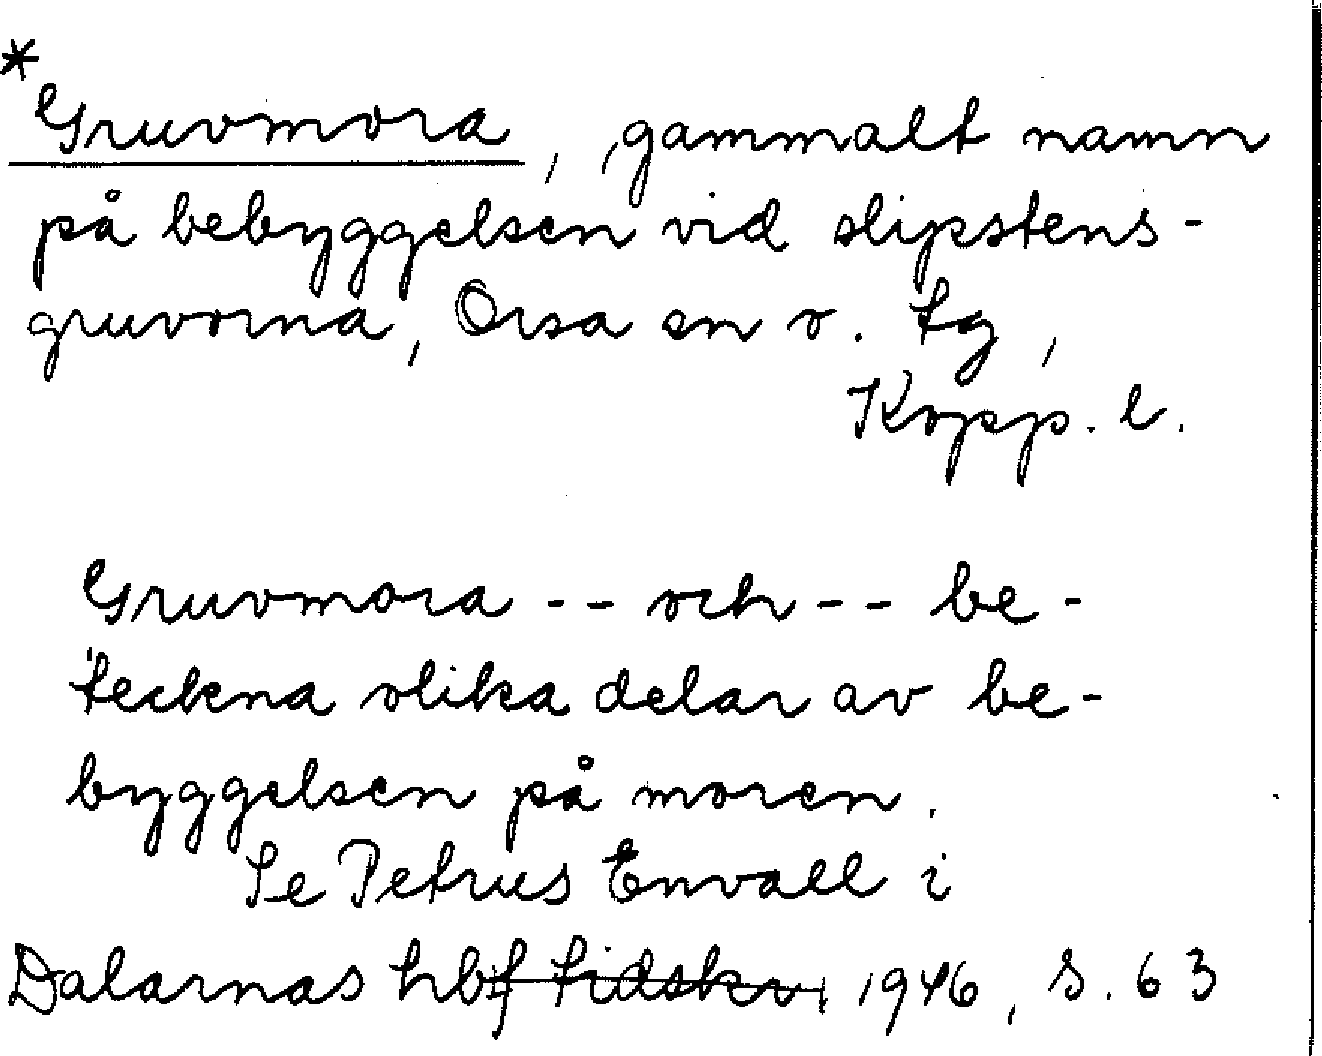 *
Gruvmora, gammalt namn
på bebyggelsen vid slipstens-
gruvorna, Orsa sn o. tg,
Kopp. l.
Gruvmora -- och -- be-
teckna olika delar av be-
byggelsen på moren.
Se Petrus Envall i
Dalarnas hbf tidskr 1946, s. 63